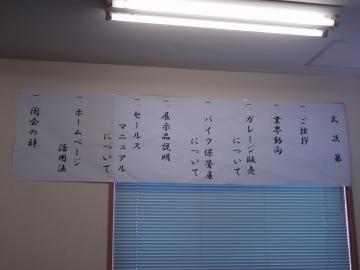 式次第
一、ご挨拶
一、業界動向
一、ガレージ販売
について
一、バイク保管庫
について
一、展示品説明
一、セールス
マニュアル
について
一、ホームページ
活用法
一、閉会の辞